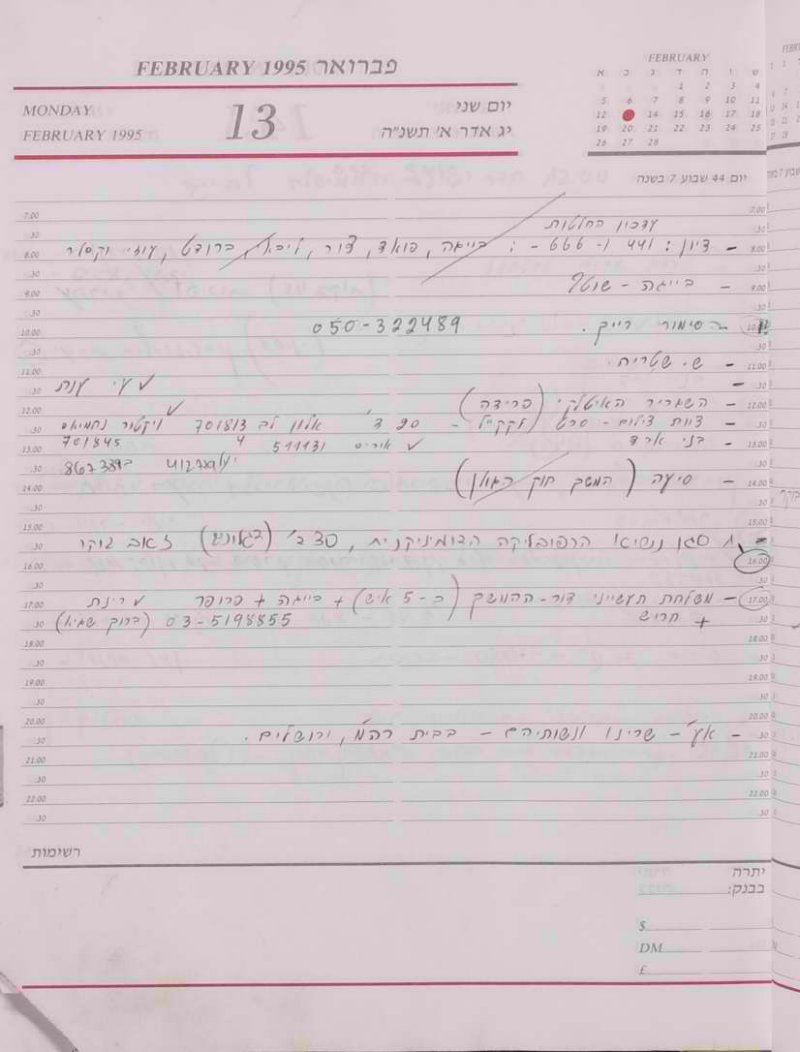 פברואר FEBRUARY 1995
MONDAY יום שני
FEBRUARY 1995 13 יג אדר א' תשנ"ה
FEBRUARY
א ב ג ד ה ו ש
1 2 3 4
5 6 7 8 9 10 11
12 14 15 16 17 18
19 20 21 22 23 24 25
26 27 28
יום 44 שבוע 7 בשנה
7.00
.30 עדכון החלטות
8.00 - דיון: 441 ו- 666 - : בייגה, פואד, צור, ליבאי, ברודט, עוזי וקסלר
.30
9.00 - בייגה - שוטף
.30
10.00 סימור רייך. 050-322489
.30
11.00 - ש. שטרית
.30 - ✓ ע"י ענת
12.00 - השגריר האיטלקי (פרידה)
.30 צוות צילום - סרט (לקק"ל) - 20 ד' אלון לב 701813 ויקטור נחמיאס
13.00 - בני ארד ✓ איריס 511131 701845
.30
14.00 - סיעה (המשך חוק הגולן)
.30
15.00
.30 סגן נשיא הרפובליקה הדומיניקנית, 30 ד' זאב בוקר
16.00
.30
17.00 - משלחת תעשייני דור-ההמשך (כ-5 איש) + בייגה + פרופר
.30 + חריש 03-5198855
18.00
.30
19.00
.30
20.00
.30 - אצ' - שרינו ונשותיהם - בבית רהמ, ירושלים.
21.00
.30
22.00
.30
רשימות
יתרה
בבנק:
$
DM
£